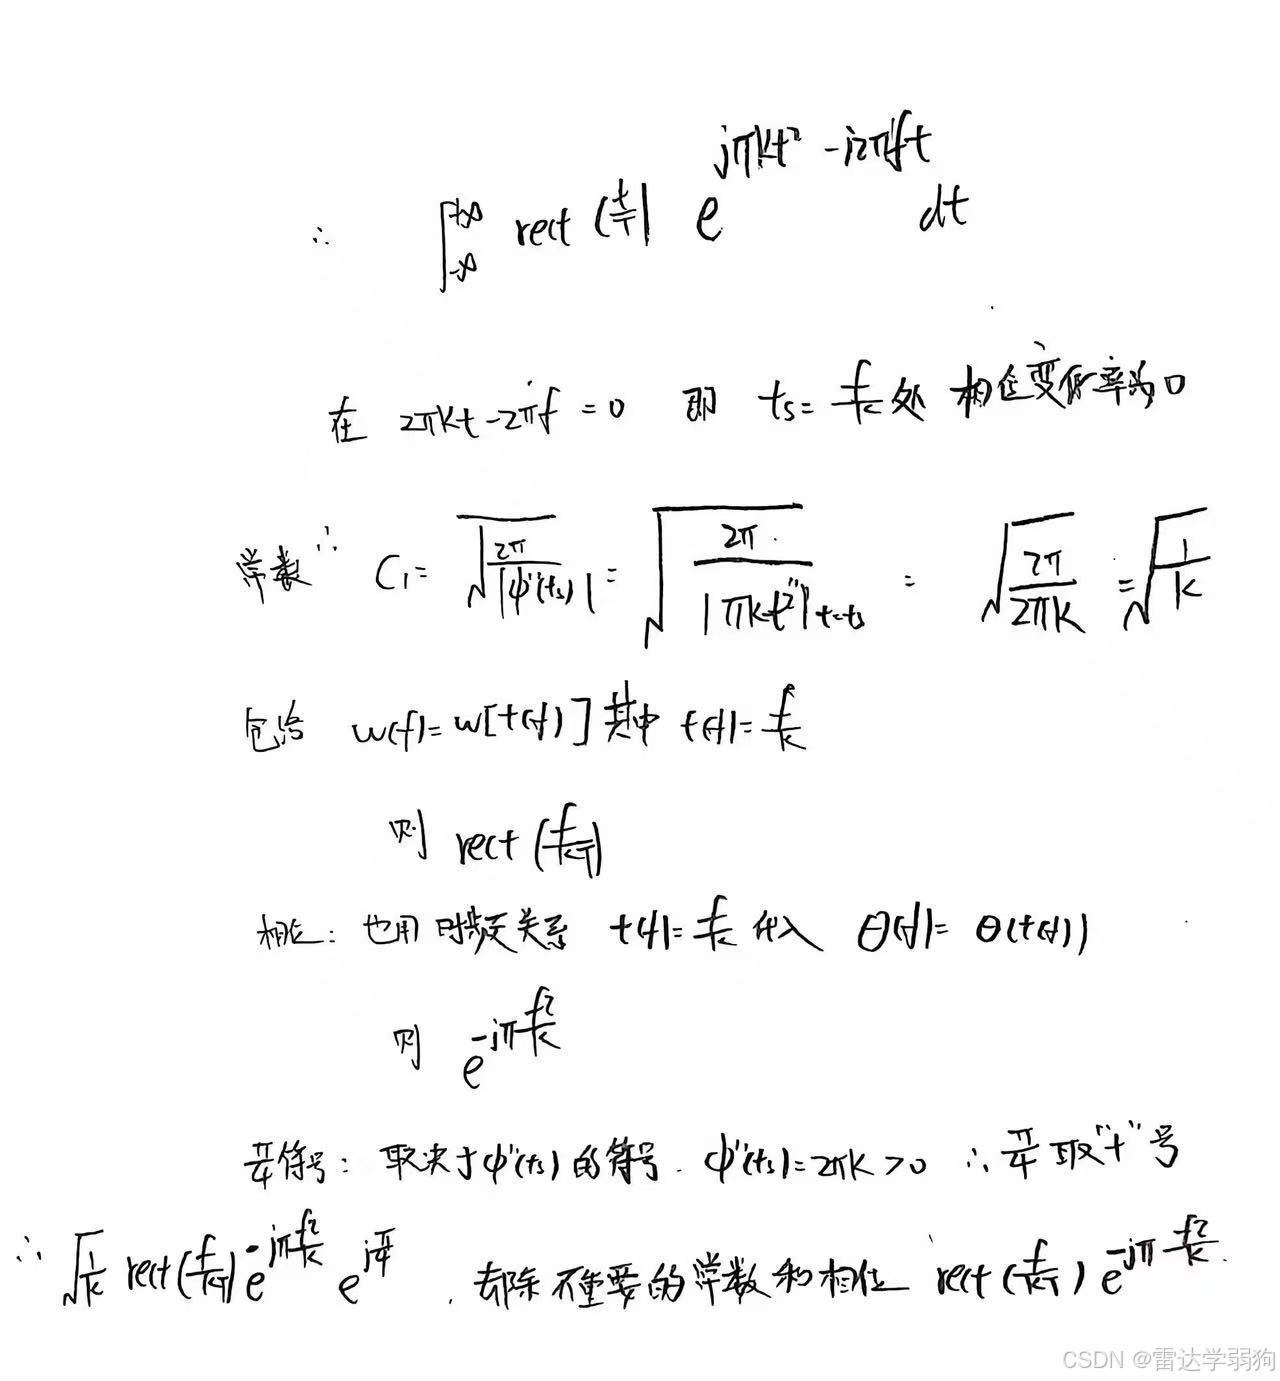 ∴ ∫_{-∞}^{+∞} rect(t/T) e^{jπkt² - j2πft} dt
在 2πkt - 2πf = 0 即 ts = f/k 处 相位变化率为0
常数∴ C₁ = √(2π/|φ''(ts)|) = √(2π/|πkt²''|t=ts) = √(2π/2πk) = √(1/k)
包络 w(f) = w[t(f)] 其中 t(f) = f/k
则 rect(f/kT)
相位: 也用时频关系 t(f) = f/k 代入 θ(f) = θ(t(f))
则 e^{-jπf²/k}
π/4符号: 取决于φ''(ts)的符号. φ''(ts) = 2πk > 0 ∴ π/4 取"+"号
∴ √(1/k) rect(f/kT) e^{-jπf²/k} e^{jπ/4} . 去除不重要的常数和相位 rect(f/kT) e^{-jπf²/k}.
CSDN @雷达学弱狗